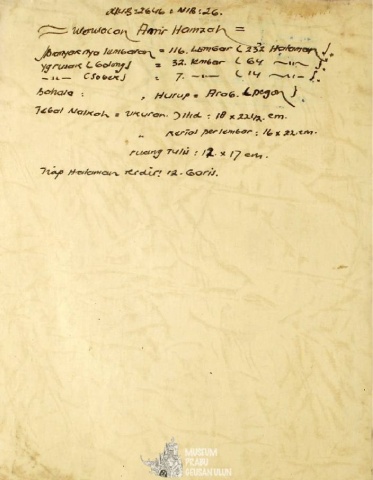 = Wawacan Amir Hamzah =
banyaknya lembaran = 116. Lembar (232 Halaman).
yg rusak (bolong) = 32. lembar (64 -"-).
-"- (Sobek) = 7. -"- (14 -"-).
bahasa : , Hurup = Arab. (pegon)
Tebal Naskah = Ukuran. Jilid : 18 x 22 1/2. cm.
" kertas perlembar : 16 x 22 cm.
ruang tulis : 12 x 17 cm.
Tiap Halaman terdiri 12. Garis.
MUSEUM
PRABU
GEUSAN ULUN